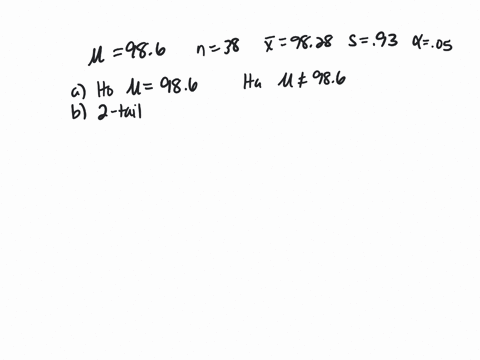 μ = 98.6 n = 38 x̄ = 98.28 s = .93 α = .05
a) Ho μ = 98.6 Ha μ ≠ 98.6
b) 2-tail